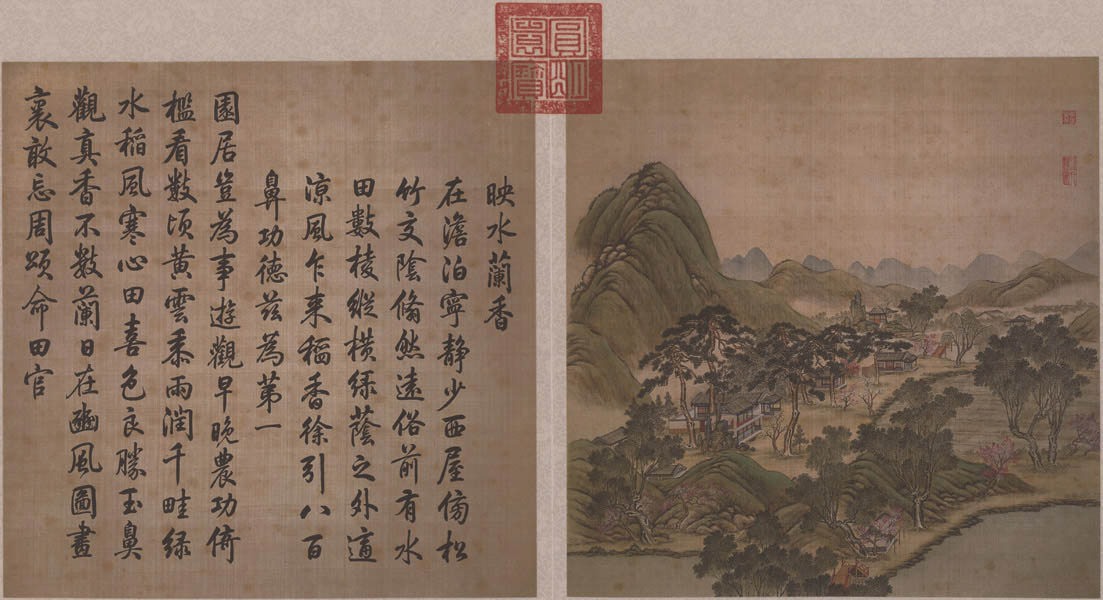 圓明園寶
映水蘭香
在澹泊寧靜少西屋傍松
竹交陰翛然遠俗前有水
田數棱縱橫綠蔭之外適
涼風乍来稻香徐引八百
鼻功德茲為第一
園居豈為事遊觀早晚農功倚
檻看數頃黃雲黍雨潤千畦綠
水稻風寒心田喜色良勝玉鼻
觀真香不數蘭日在豳風圖畫
裏敢忘周頌命田官